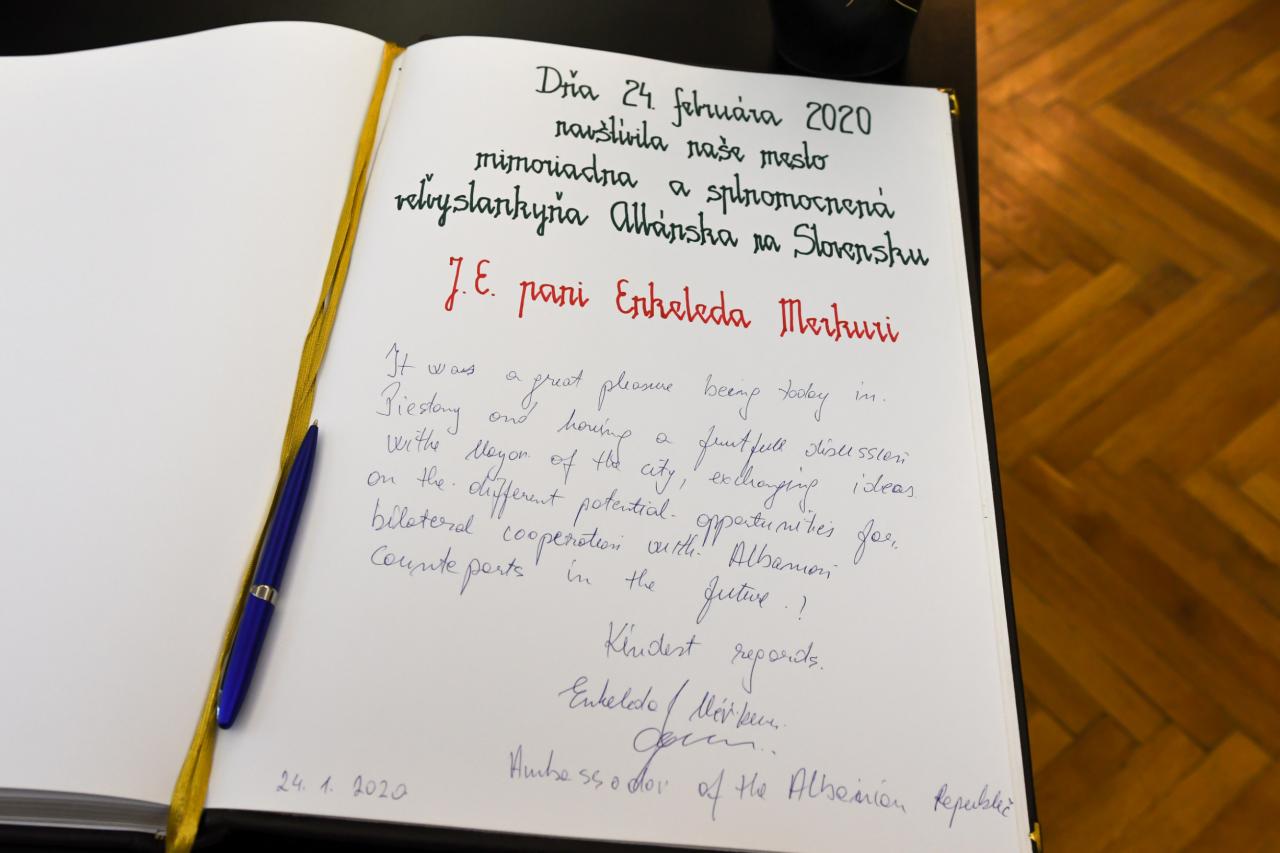 Dňa 24. februára 2020
navštívila naše mesto
mimoriadna a splnomocnená
veľvyslankyňa Albánska na Slovensku
J. E. pani Enkeleda Merkuri
It was a great pleasure being today in.
Piestany and having a fruitfull discussion
withe Mayor of the city, exchanging ideas
on the different potential opportunities for.
bilateral cooperation with Albanian
counteparts in the future !
Kindest regards.
Enkeleda Merkuri
Ambassador of the Albanian Republic
24. 1. 2020